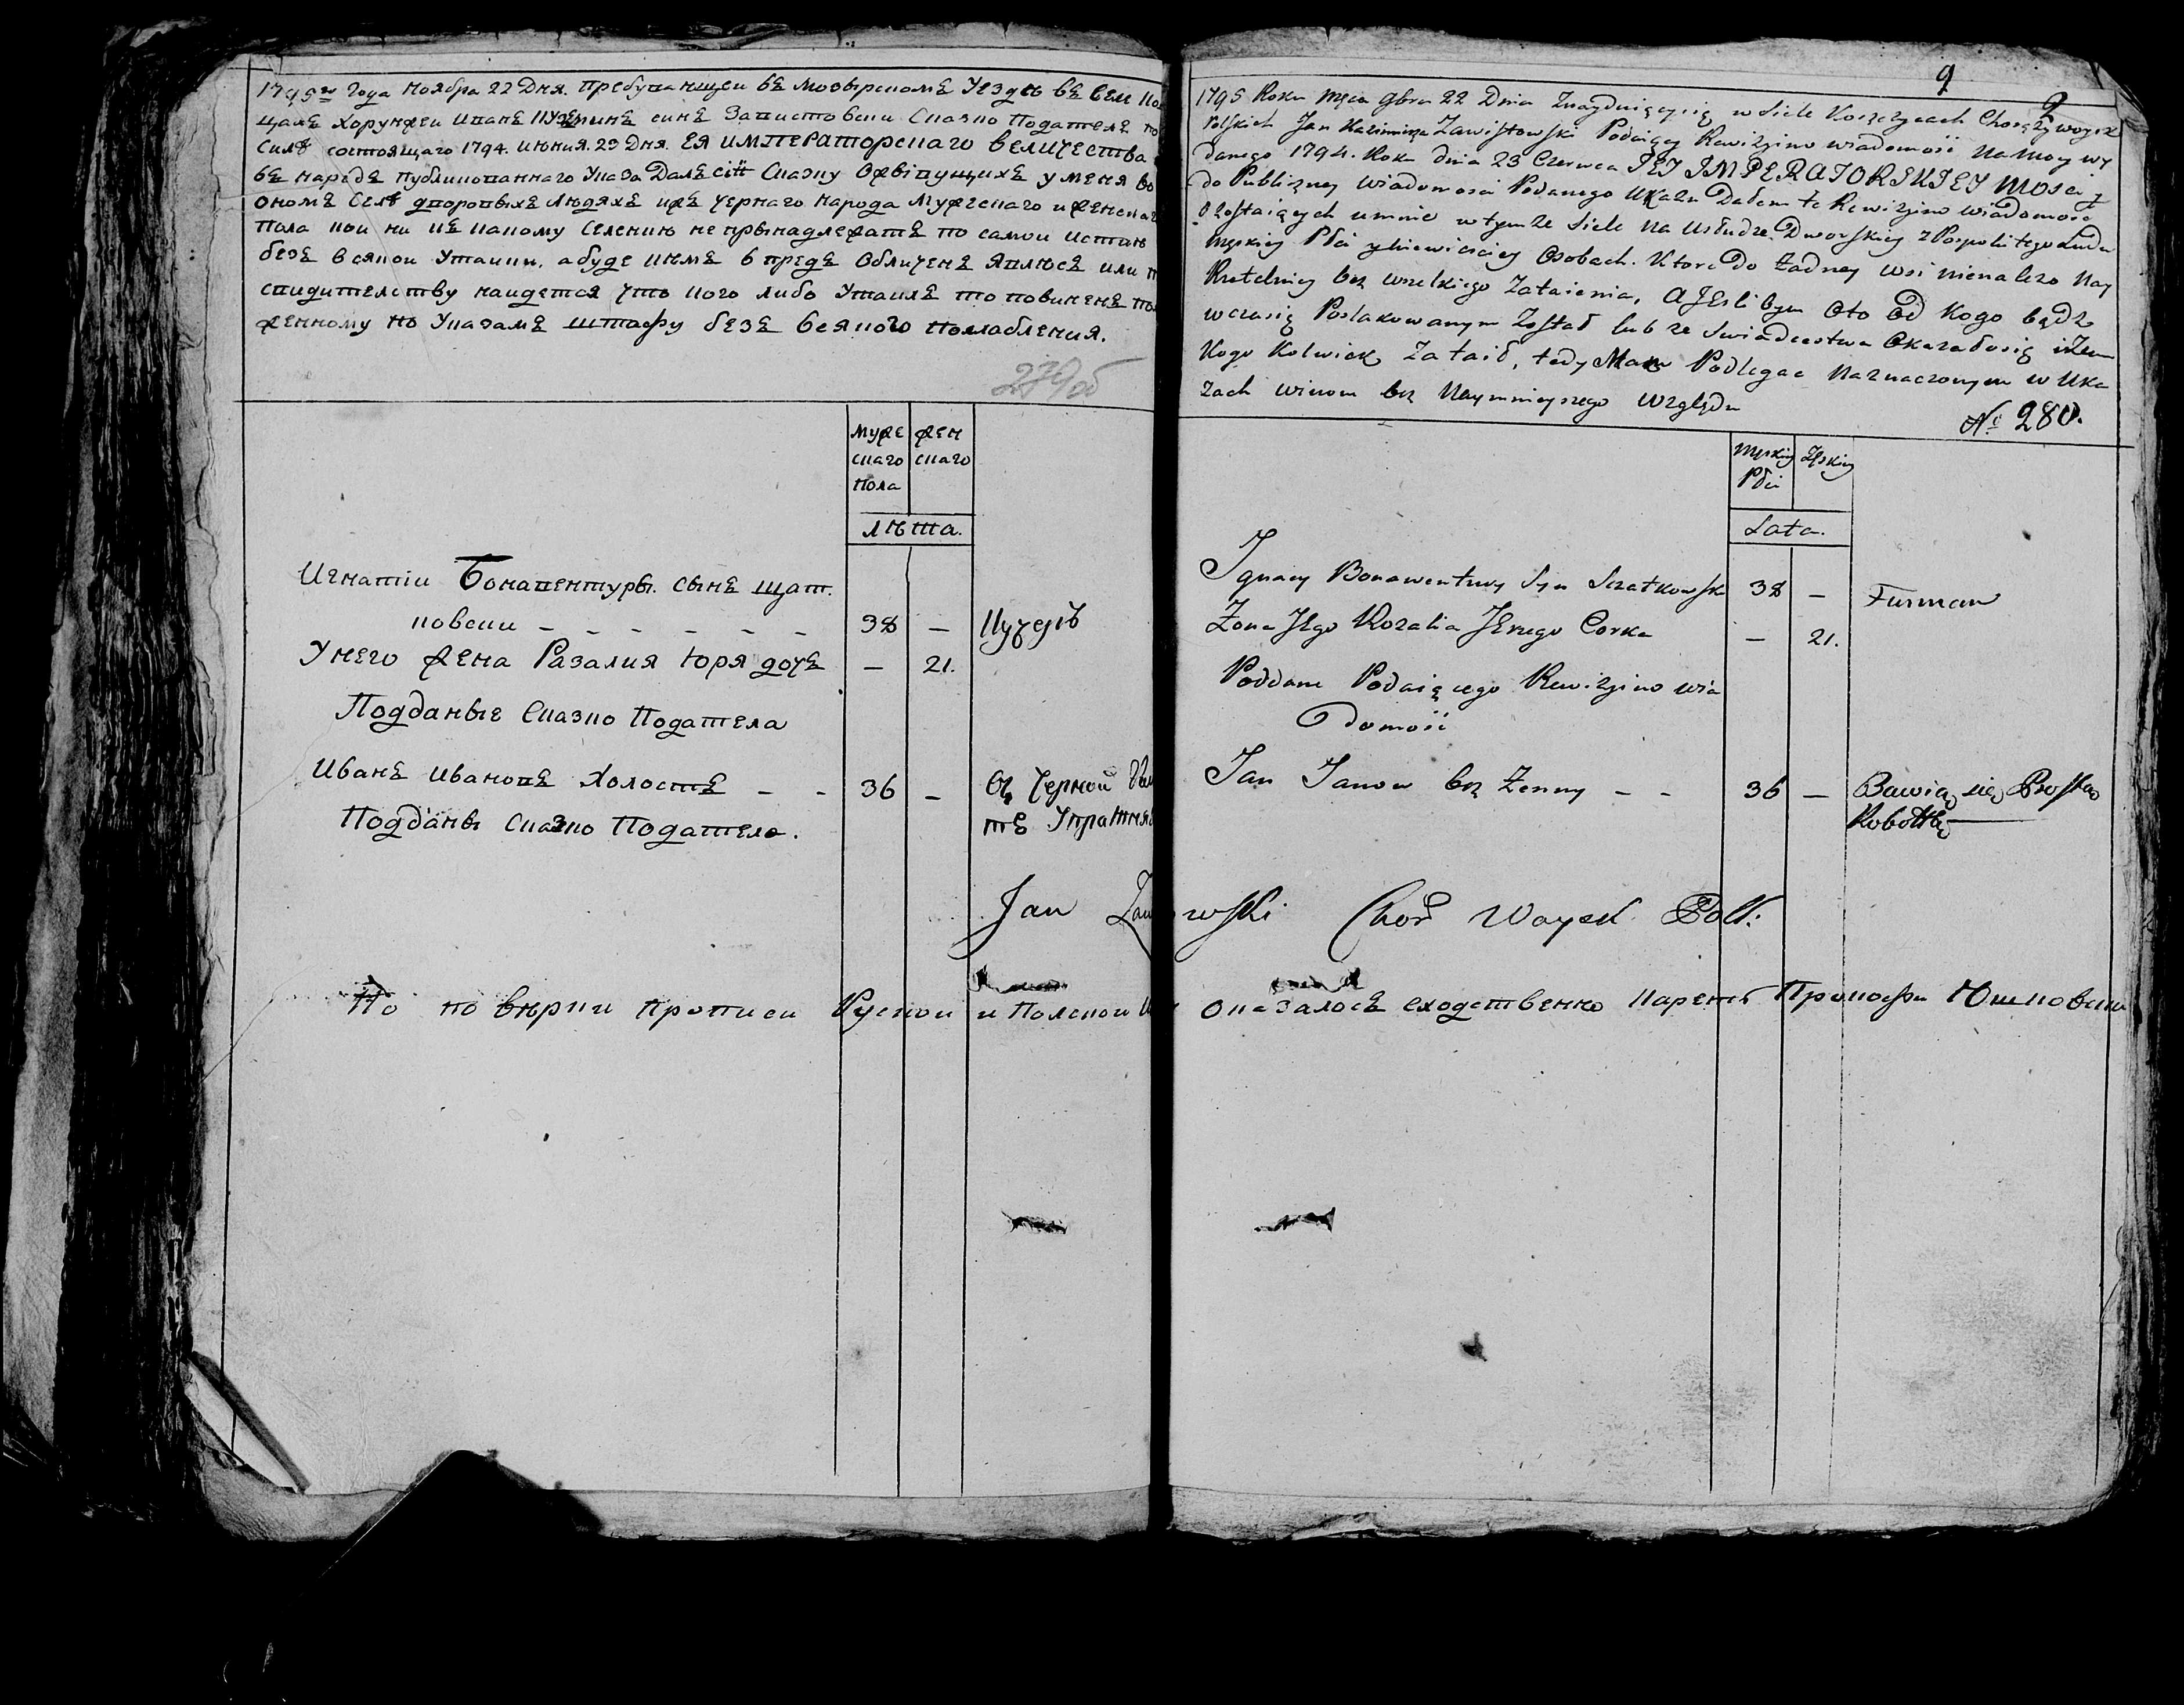 1795го Года Ноября 22 Дня. Пребувающеи въ Мозырскомъ Уездѣ въ Селѣ
щахъ Хорунжеи Иванъ синъ Завистовски Сказко Податель по
Силѣ состоящаго 1794. Июния. 23 Дня. ЕЯ ИМПЕРАТОРСКАГО ВЕЛИЧЕСТВА
въ народъ Публикованнаго Указа Далъ сiю Сказку О живущихъ у меня во
ономъ Селѣ дворовыхъ Людяхъ ижъ чернаго Народа Мужескаго и женскаг
Пола кои ни къ какому Селению непрынадлежатъ по самои Истин
безъ всякои Утаики. а буде икмъ впредъ Обличенъ Явлюсь или
свидителству наидется что кого либо Утаилъ то повиненъ
женному По Указамъ штрафу безъ всякого Послабления.
279об
Муже жен
скаго скаго
Пола
Лѣта.
Игнатiи Бонавентуры. сынъ Щат.
ковски - - - - - - 38 — Кучеръ
Унего жена Разалия Юря дочъ — 21.
Подданые Сказко Податела
Иванъ Ивановъ Холостъ - - 36 — Въ Черной
Подданы Сказко Податела. тъ Упражня
9
1795 Roku męca 9bra 22 Dnia Znayduiącysię w Siele Koszczycach Chorąży woysk
Polskich Jan Kazimierza Zawistowski Podaiący Rewizyino wiadomość Na Mocy wy
danego 1794. Roku dnia 23 Czerwca JEJ IMPERATORSKIEY MOSCI y
do Publiczney Wiadomosci Podanego Ukazu Dałem te Rewizyino wiadomość
O zostaiących umnie wtymże Siele Na Usłudze Dworskiey z Pospolitego Ludu
Męskiey Płci y Niewiesciey Osobach. Ktore do Żadney Wsi nienależo Nay
Rzetelniey bez wszelkiego Zataienia, A JEsli bym Oto Od Kogo bądz
wczasie Poslakowanym Został lub ze Swiadectwa Okazałosię iżem
Kogo Kolwiek Zataił, tedy Mam Podlegac Naznaczonym w Uka
zach winom bez Naymnieyszego Względu
№ 280.
Męskiey Żęskiey
Płci
Lata.
Ignacy Bonawentury Syn Szczatkowsk 38 — Furman
Żona JEgo Rozalia JErzego Corka — 21.
Poddane Podaiącego Rewizyino wia
domość
Jan Janow bez Żenny - - 36 — Bawiąsię Prostą
Robottą
Jan Zawistowski Chor Woysk Poll:
По поверки прописи Руской и Полской оказалось сходственно